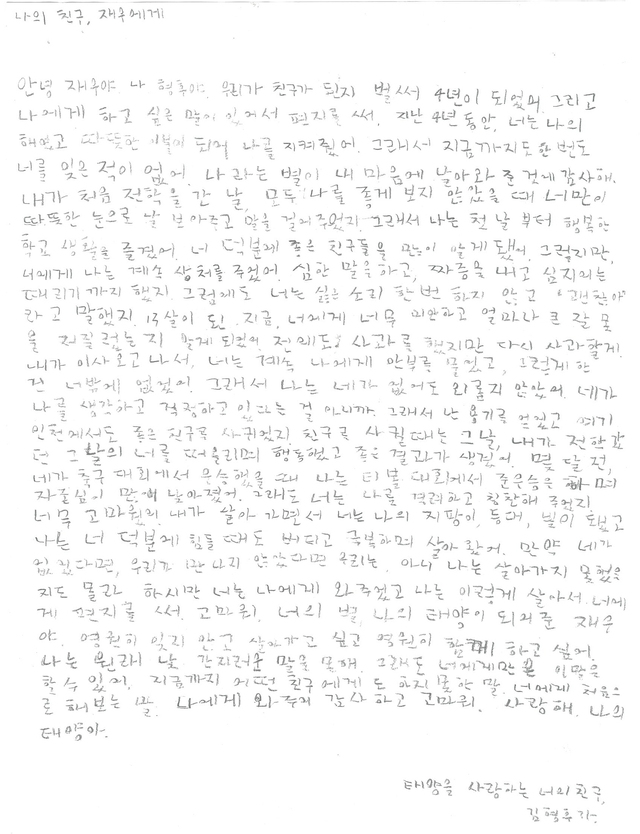 나의 친구, 재우에게
안녕 재우야 나 형후야. 우리가 친구가 된지 벌써 4년이 되었어. 그리고
나에게 하고 싶은 말이 있어서 편지를 써. 지난 4년 동안, 너는 나의
해였고 따뜻한 이불이 되어 나를 지켜줬어. 그래서 지금까지도 한번도
너를 잊은 적이 없어. 나라는 별이 내 마음에 날아와 준 것에 감사해.
내가 처음 전학을 간 날, 모두 나를 좋게 보지 않았을 때 너만이
따뜻한 눈으로 날 보아주고 말을 걸어주었지. 그래서 나는 첫 날 부터 행복한
학교 생활을 즐겼어. 너 덕분에 좋은 친구들을 많이 알게 됐어. 그렇지만,
너에게 나는 계속 상처를 주었어. 심한 말을 하고, 짜증을 내고 심지어는
때리기까지 했지. 그럼에도 너는 싫은 소리 한번 하지 않고 '괜찮아'
라고 말했지. 13살이 된 지금, 너에게 너무 미안하고 얼마나 큰 잘못
을 저질렀는지 알게 되었어. 전에도 사과를 했지만 다시 사과할게.
내가 이사오고 나서, 너는 계속 나에게 안부를 물었고, 그렇게 한
건 너밖에 없었어. 그래서 나는 네가 없어도 외롭지 않았어. 네가
나를 생각하고 걱정하고 있다는 걸 아니까. 그래서 난 용기를 얻었고 여기
인천에서도 좋은 친구를 사귀었지. 친구를 사귈때는 그날, 내가 전학 갔
던 그날의 너를 떠올리며 행동했고 좋은 결과가 생겼어. 몇 달 전,
네가 축구 대회에서 우승했을 때 나는 티볼 대회에서 준우승을 하며
자존심이 많이 낮아졌어. 그래도 너는 나를 격려하고 칭찬해 주었지.
너무 고마웠어. 내가 살아 가면서 너는 나의 지팡이, 등대, 빛이 되었고
나는 너 덕분에 힘들 때도 버티고 극복하며 살아 왔어. 만약 네가
없었다면, 우리가 만나지 않았다면 우리는. 아니 나는 살아가지 못했을
지도 몰라. 하지만 너는 나에게 와주었고 나는 이렇게 살아서 너에
게 편지를 써. 고마워. 너의 별, 나의 태양이 되어준 재우
야. 영원히 잊지 않고 살아가고 싶고 영원히 함께 하고 싶어.
나는 원래 낯 간지러운 말을 못해. 그래도 너에게만은 이말을
할 수 있어. 지금까지 어떤 친구에게도 하지 못한 말. 너에게 처음으
로 해보는 말. 나에게 와 주어 감사하고 고마워. 사랑해. 나의
태양아.
태양을 사랑하는 너의 친구,
김형후가.